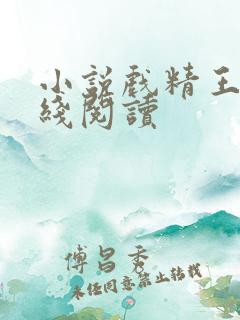 小説戲精王
綫閱讀
傅昌秀
未任同意禁止转载